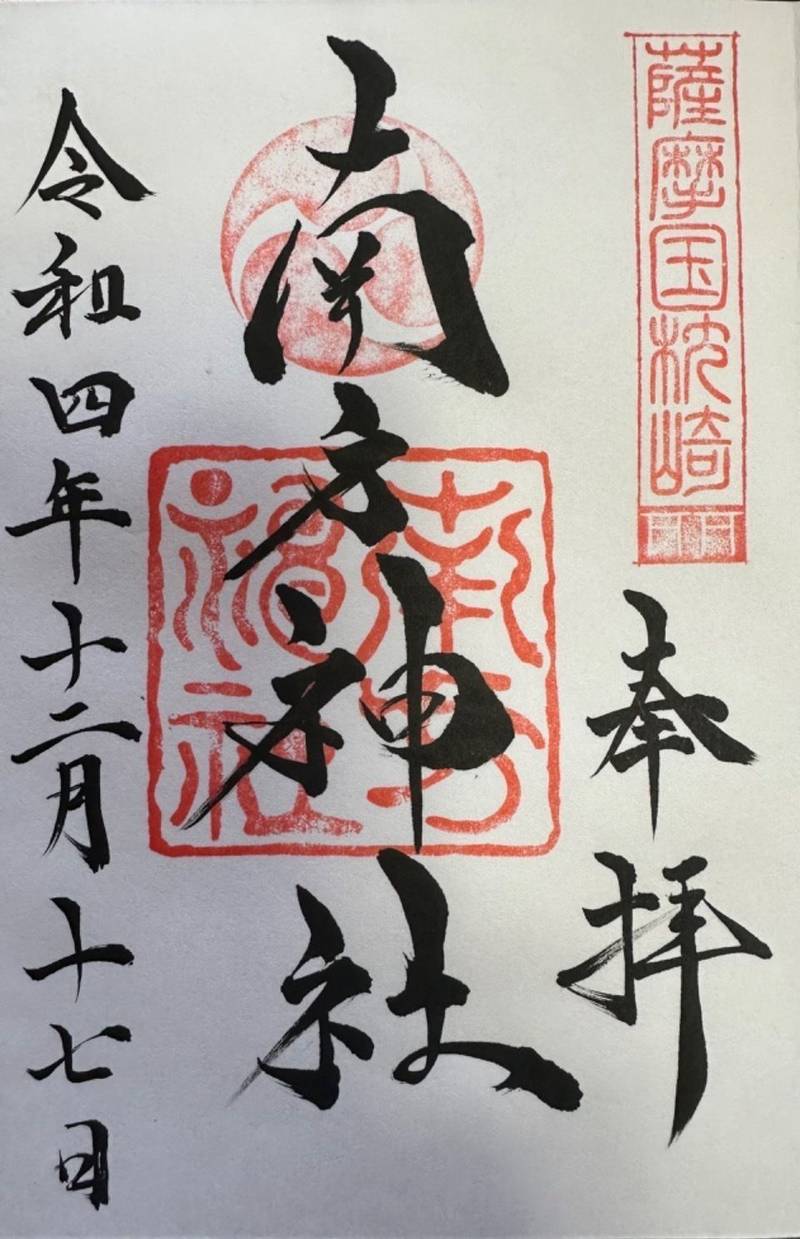 薩摩国枕崎
奉拝
南方神社
南方神社
令和四年十二月十七日